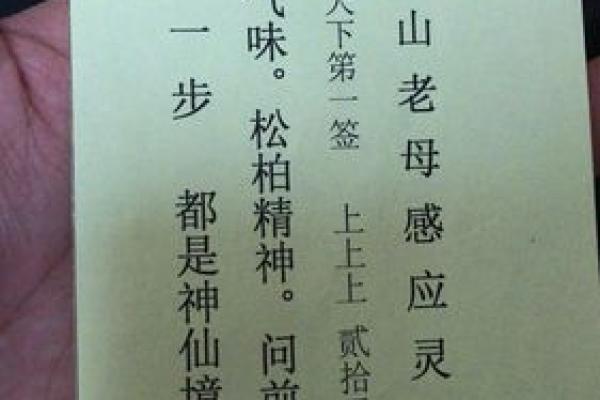 山老母感应灵
天下第一签 上上上 贰拾
气味。松柏精神。问前
一步 都是神仙境